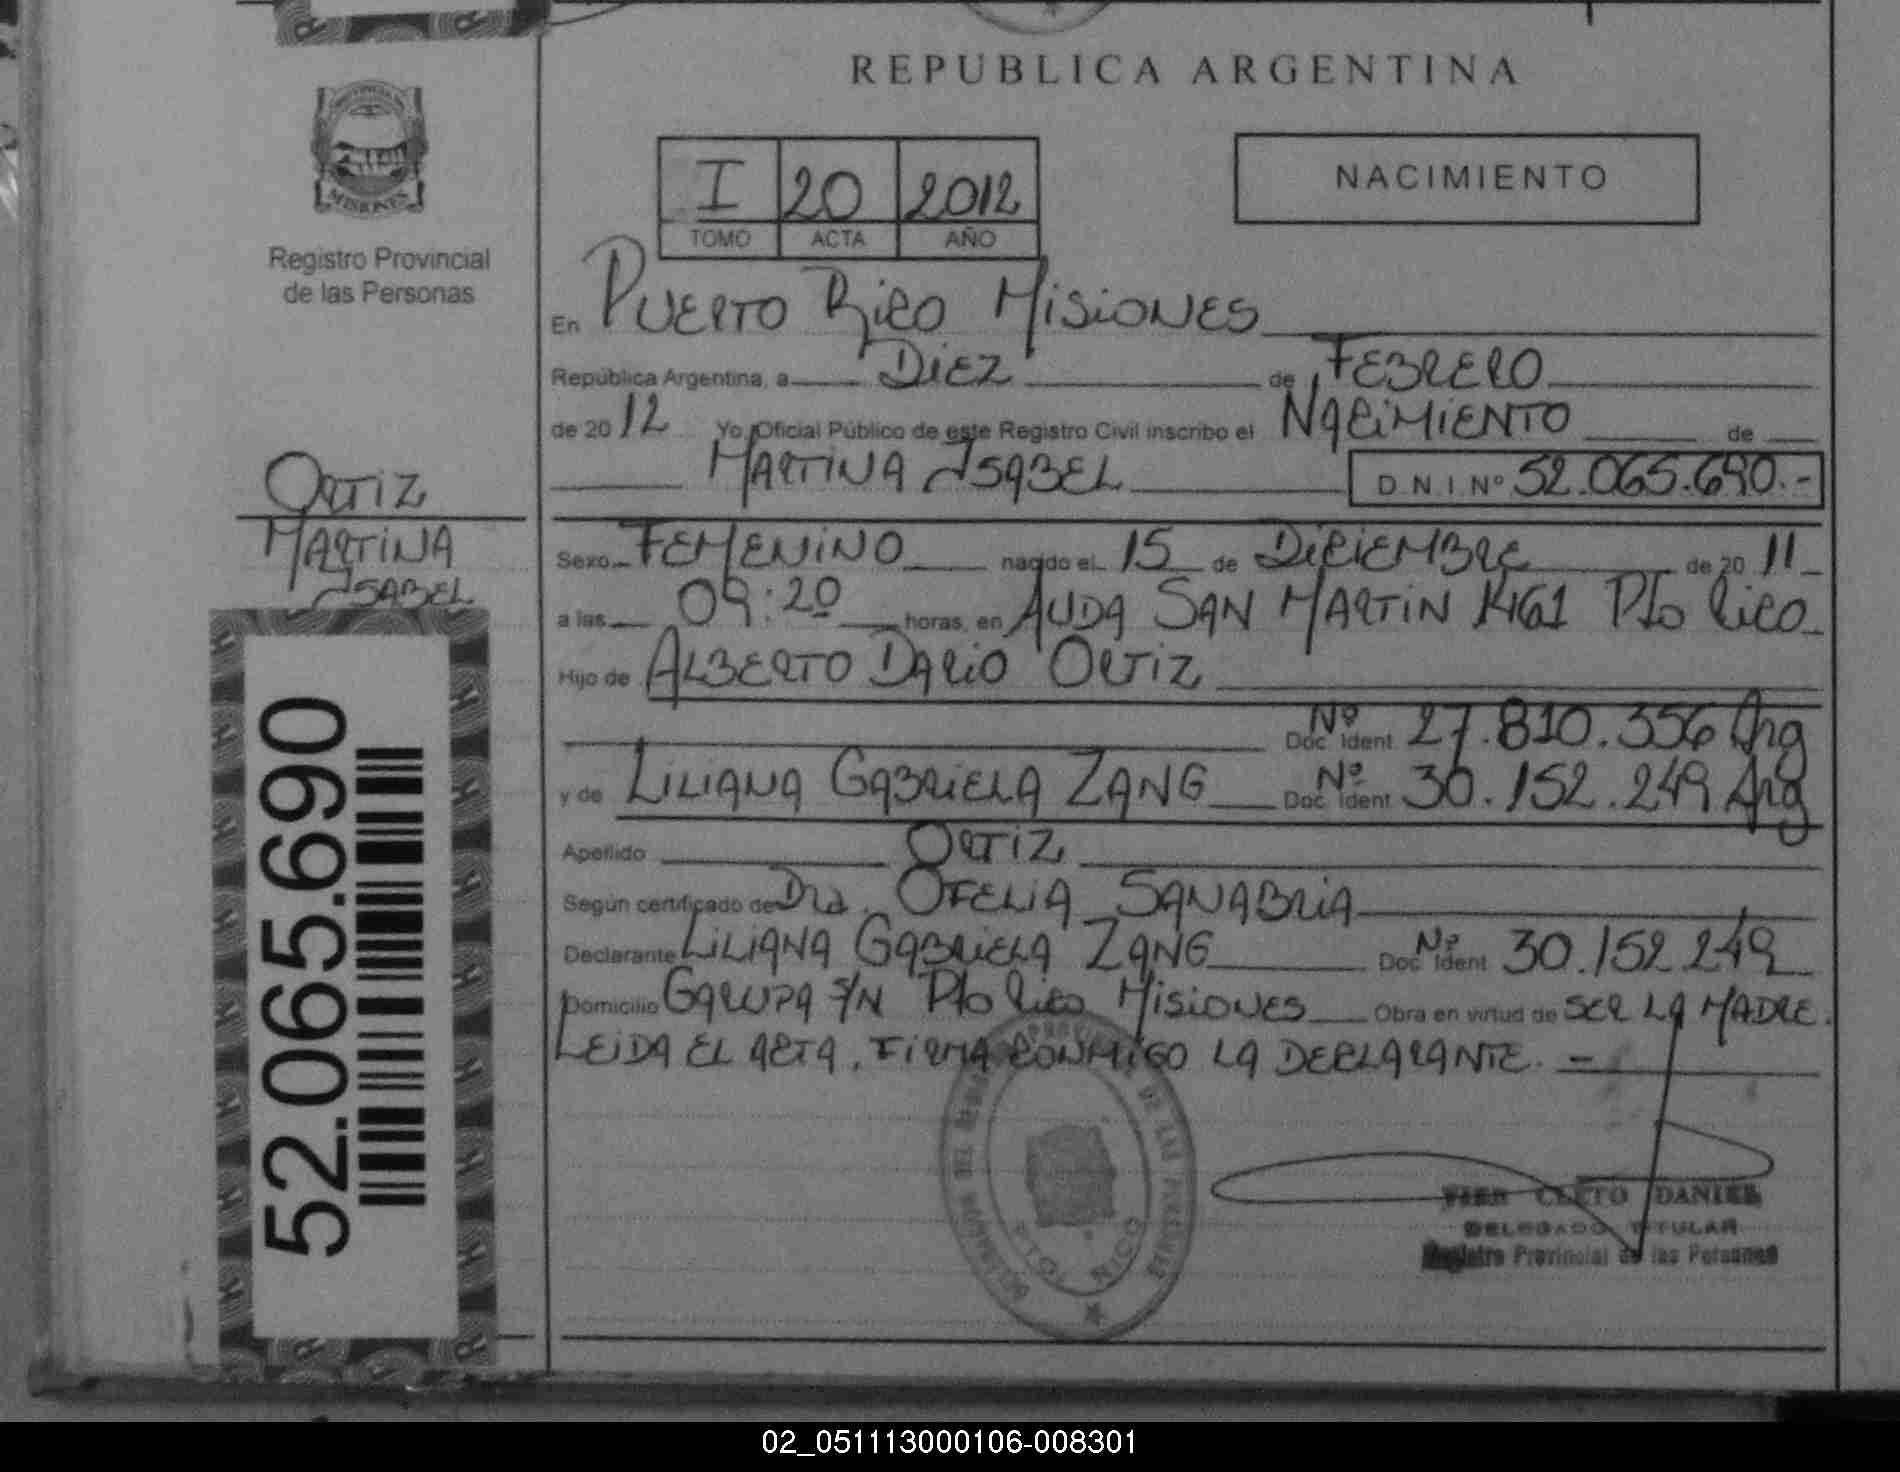 REPUBLICA ARGENTINA
MISIONES
Registro Provincial
de las Personas
I 20 2012
TOMO ACTA AÑO
NACIMIENTO
En PUERTO RICO MISIONES
República Argentina, a DIEZ de FEBRERO
de 2012 Yo, Oficial Público de este Registro Civil inscribo el NACIMIENTO de
MARTINA ISABEL D N I Nº 52.065.690.-
ORTIZ
MARTINA
ISABEL
Sexo FEMENINO nacido el 15 de DICIEMBRE de 2011
a las 09:20 horas, en AVDA SAN MARTIN 1461 Pto Rico
Hijo de ALBERTO DARIO ORTIZ
Nº Doc Ident 27.810.356 Arg
y de LILIANA GABRIELA ZANG Nº Doc Ident 30.152.249 Arg
Apellido ORTIZ
Según certificado de Dra. OFELIA SANABRIA
Declarante LILIANA GABRIELA ZANG Nº Doc Ident 30.152.249
Domicilio GARUPA S/N Pto Rico MISIONES Obra en virtud de SER LA MADRE.
LEIDA EL ACTA, FIRMA CONMIGO LA DECLARANTE. -
52.065.690
PTO. RICO
CLETO DANIEL
DELEGADO TITULAR
Registro Provincial de las Personas
02_051113000106-008301